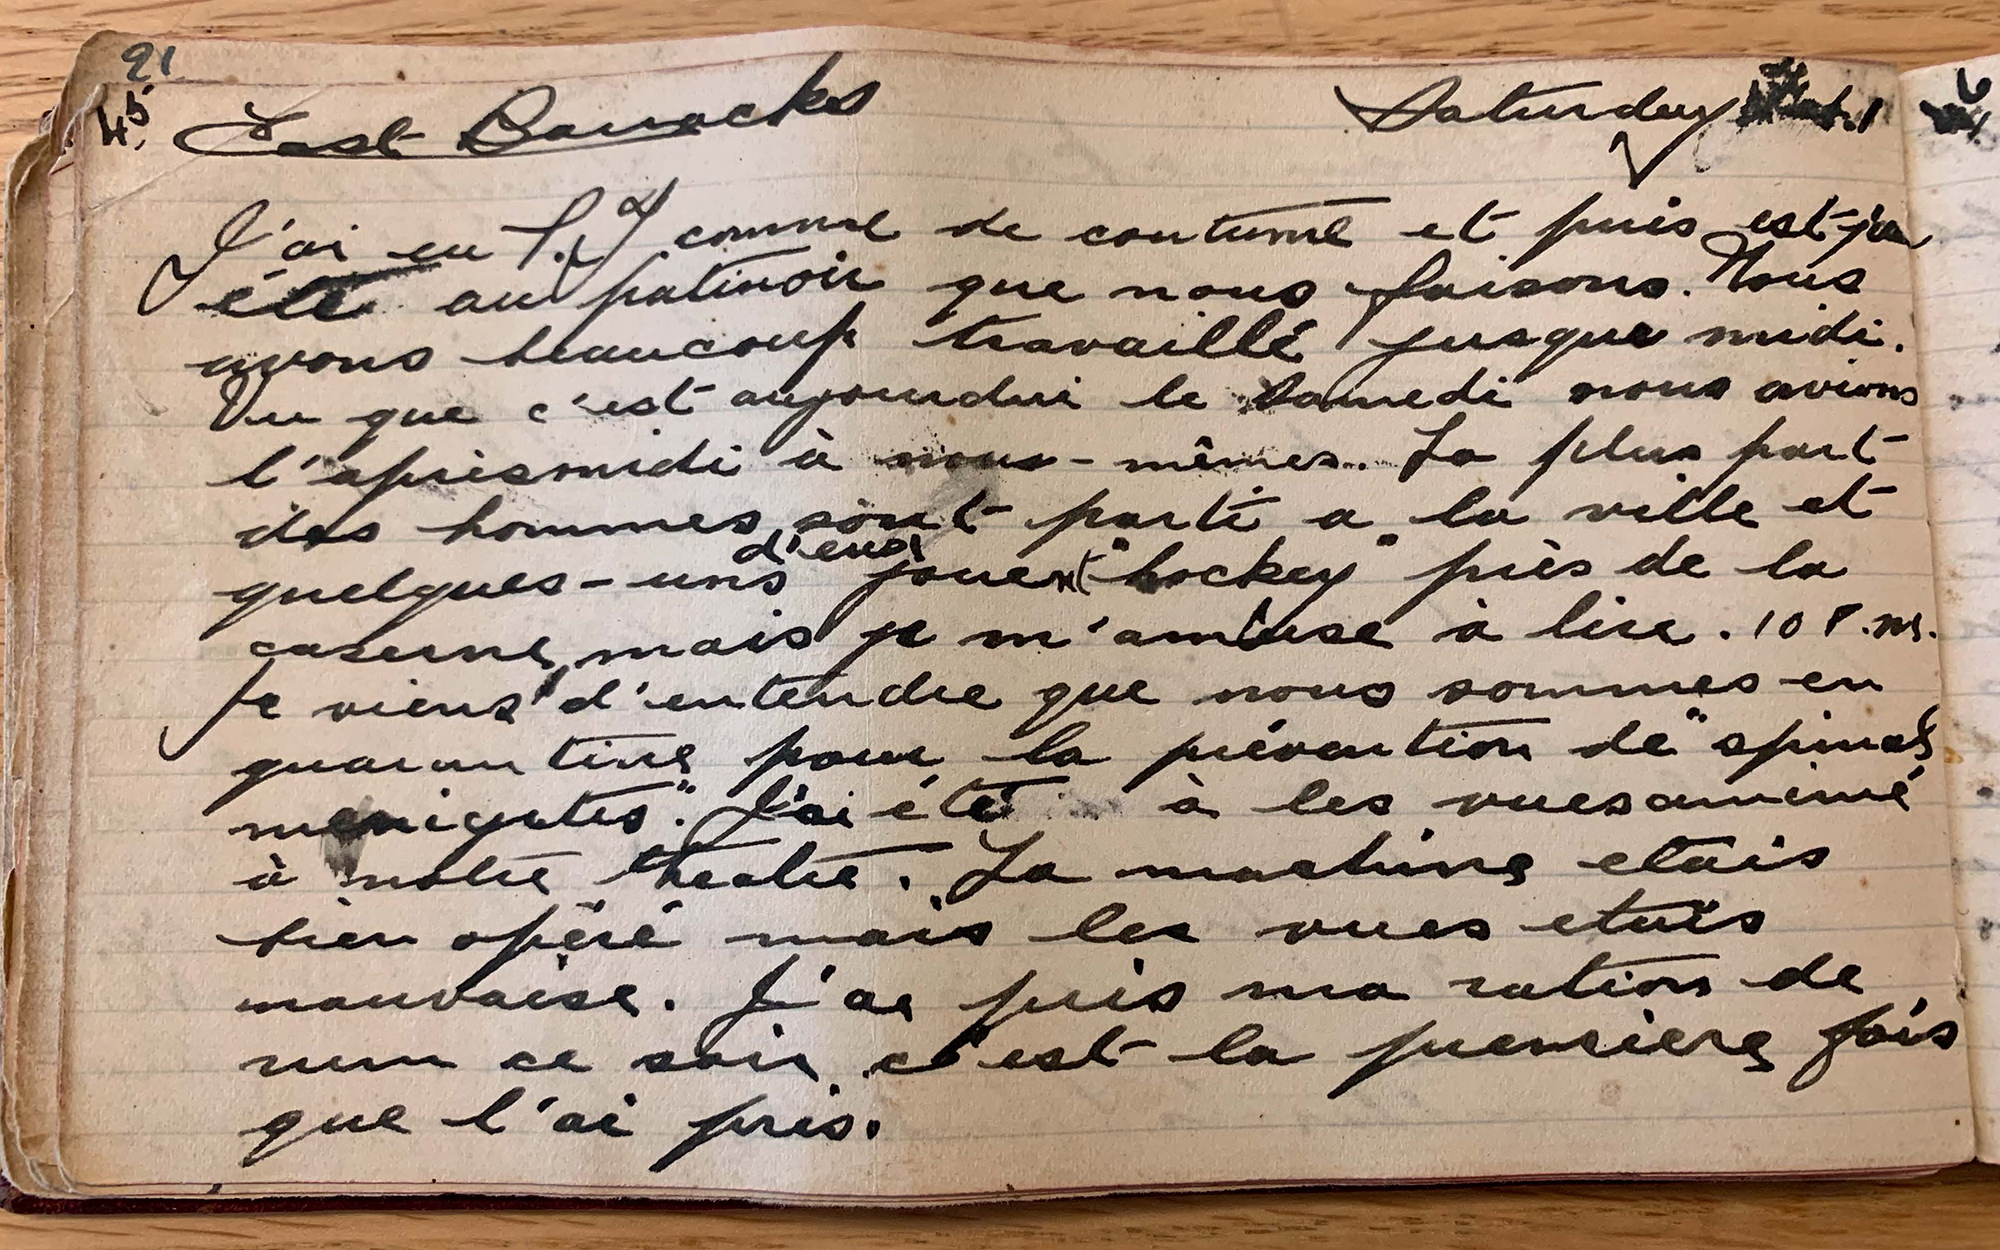 21
45
East Barracks Saturday
J'ai eu P.T comme de coutume et puis
été au patinoir que nous faisons. Nous
avons beaucoup travaillé jusque midi.
Vu que c'est aujourdui le Samedi nous avions
l'aprèsmidi à nous-mêmes. La plus part
des hommes sont parti a la ville et
d'eux
quelques-uns jouent "hockey" près de la
caserne, mais je m'amuse à lire. 10 P.M.
Je viens d'entendre que nous sommes en
quarantine pour la prévention de "spinal
menigites". J'ai été à les vues
à notre theatre. La machine etais
bien opéré mais les vues etais
mauvaise. J'ai pris ma ration de
rum ce soir, c'est la premiere fois
que l'ai pris.
6